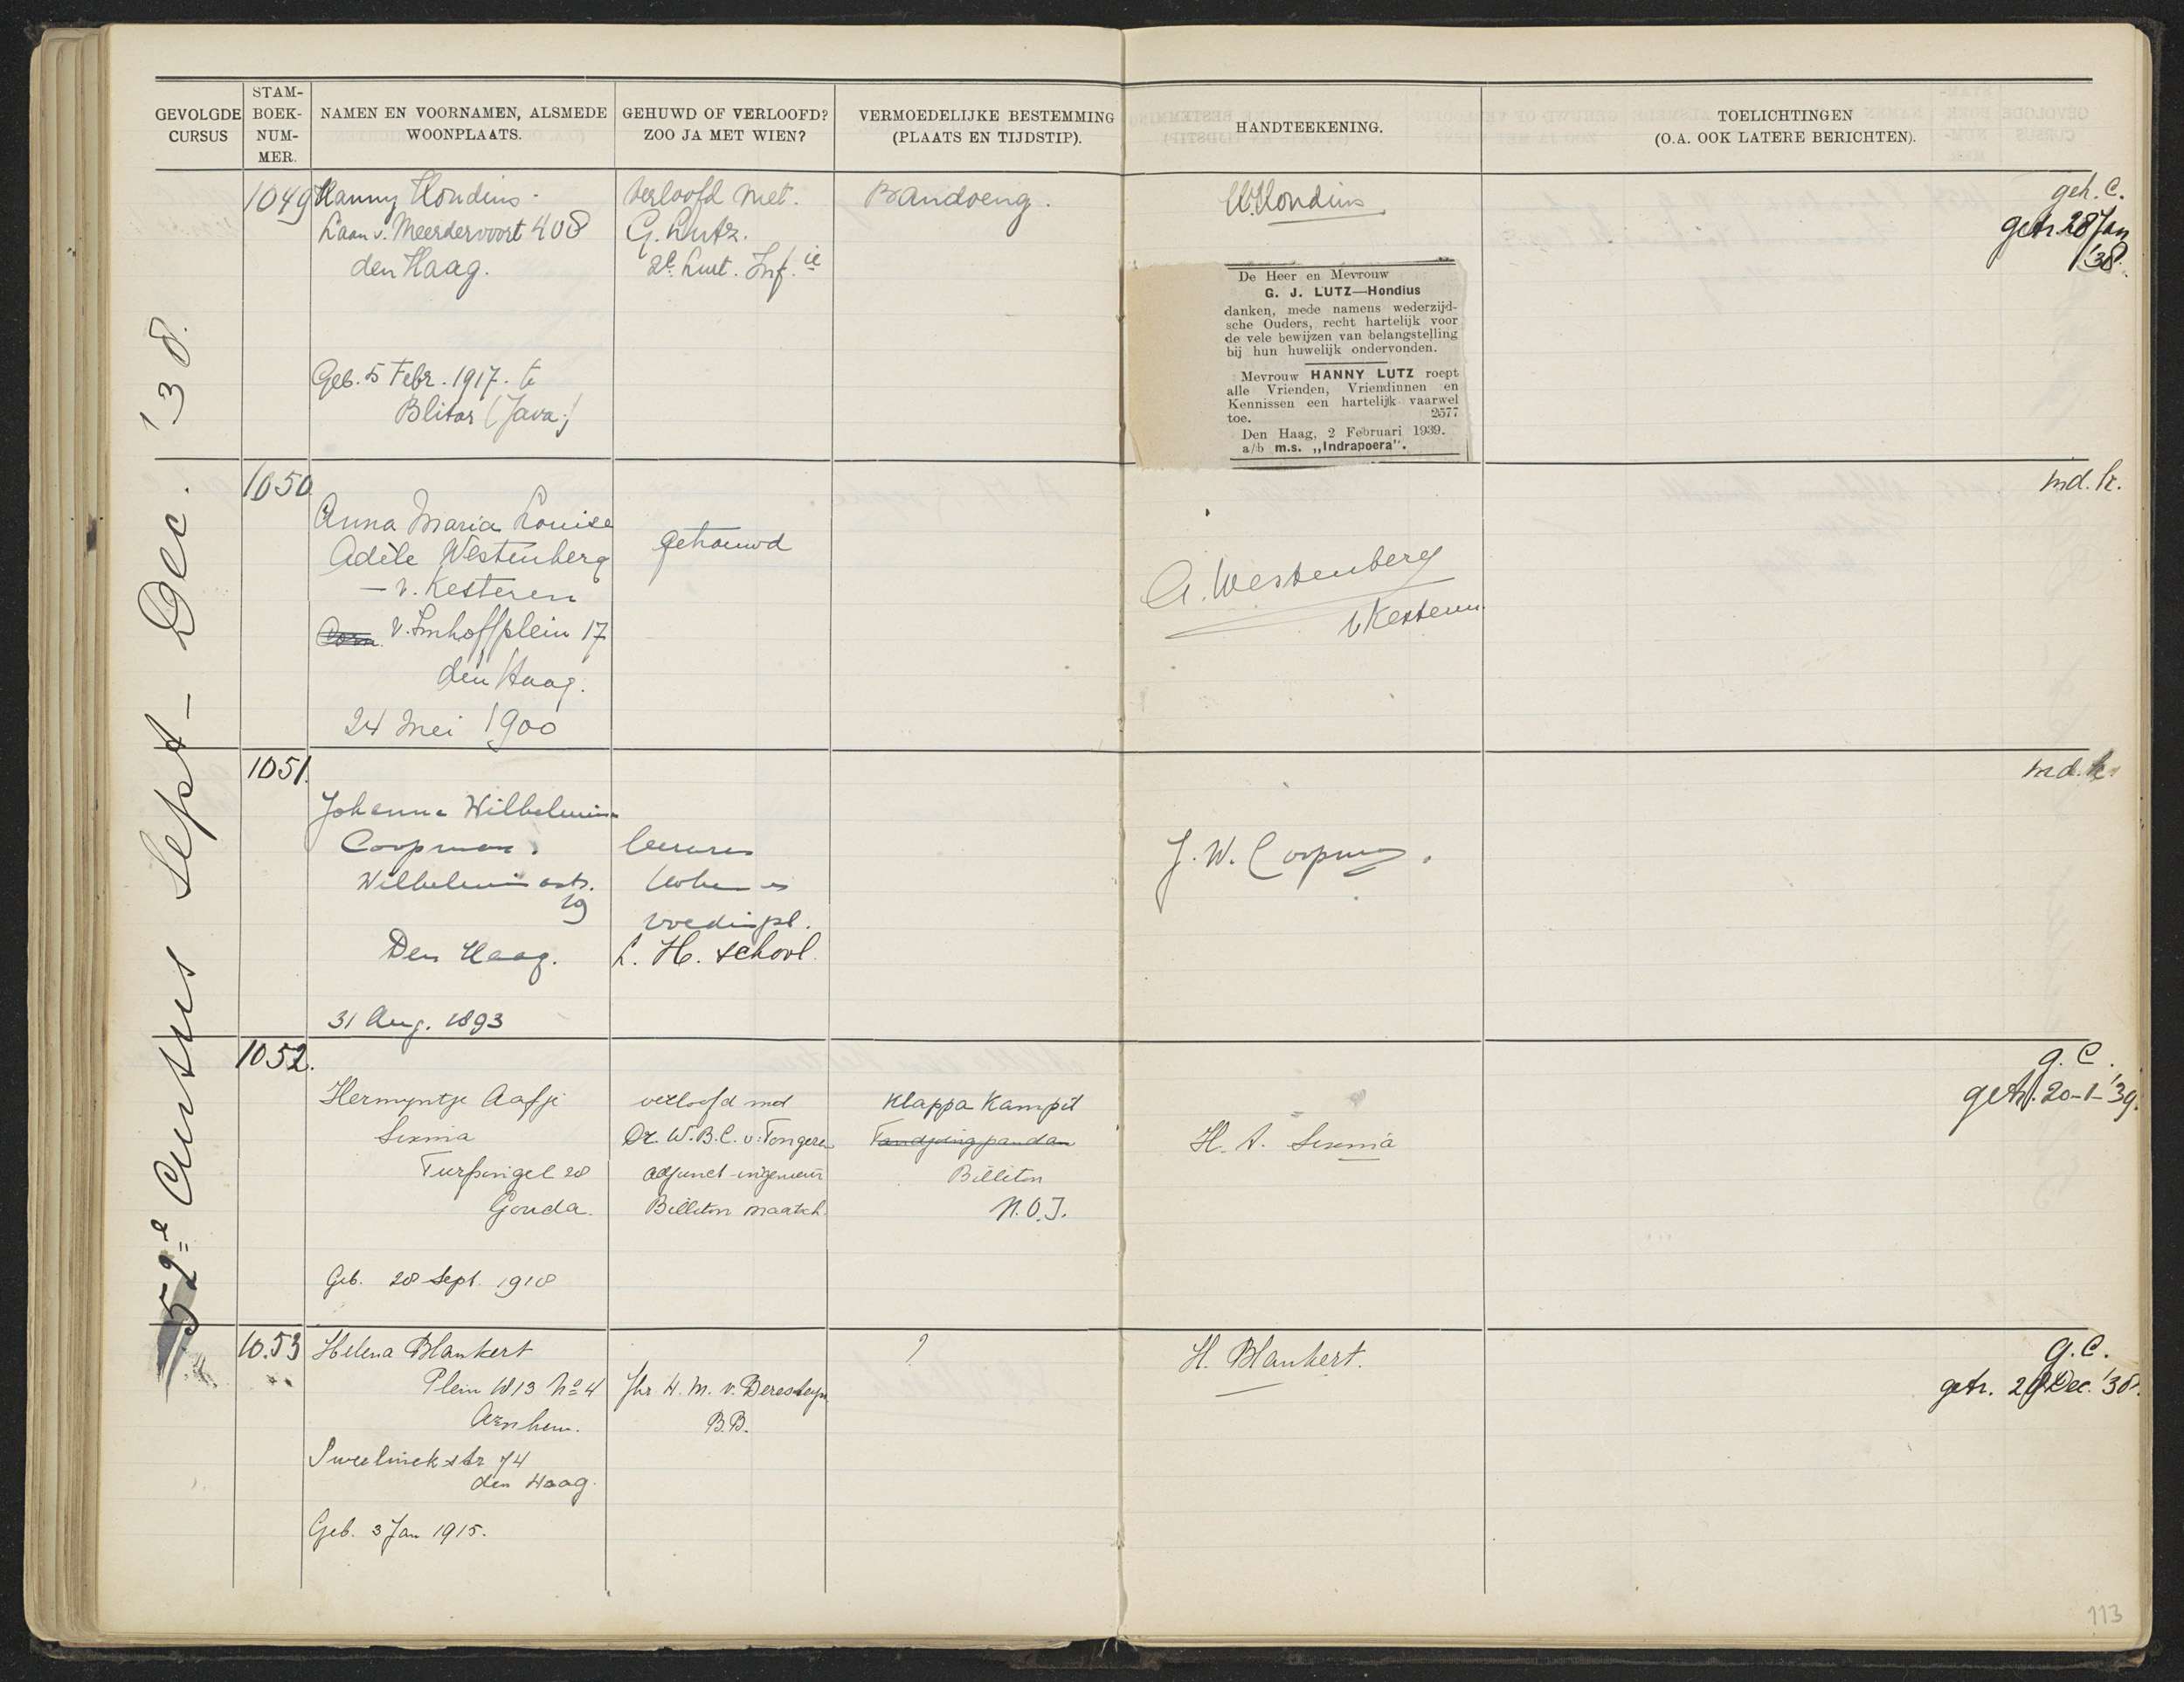 GEVOLGDE CURSUS
STAM-BOEK-NUM-MER.
NAMEN EN VOORNAMEN, ALSMEDE WOONPLAATS.
GEHUWD OF VERLOOFD? ZOO JA MET WIEN?
VERMOEDELIJKE BESTEMMING (PLAATS EN TIJDSTIP).
HANDTEEKENING.
TOELICHTINGEN (O.A. OOK LATERE BERICHTEN).
52e Cursus Sept – Dec. '38.
1049
Hanny Hondius.
Laan v. Meerdervoort 408
den Haag.
Geb. 5 Febr. 1917. te
Blitar (Java.)
Verloofd met.
G. Lutz.
2e Luit. Inf.ie
Bandoeng.
H. Hondius
De Heer en Mevrouw
G. J. LUTZ—Hondius
danken, mede namens wederzijd-
sche Ouders, recht hartelijk voor
de vele bewijzen van belangstelling
bij hun huwelijk ondervonden.
Mevrouw HANNY LUTZ roept
alle Vrienden, Vriendinnen en
Kennissen een hartelijk vaarwel
toe. 2577
Den Haag, 2 Februari 1939.
a/b m.s. „Indrapoera".
geh. C.
getr. 28 Jan
'38.
1050
Anna Maria Louise
Adèle Westenberg
– v. Kesteren
v. Imhoffplein 17
den Haag.
24 Mei 1900
getrouwd
A. Westenberg
v Kesteren
md. k.
1051.
Johanna Wilhelmina
Coopman.
Wilhelminastr.
19
Den Haag.
31 Aug. 1893
leerares
koken en
voedingsl.
L. H. school.
J. W. Coopman.
md. k.
1052.
Hermyntje Aafje
Sixma
Turfsingel 28
Gouda.
Geb. 28 Sept. 1918
verloofd met
Dr. W. B. C. v. Tongeren
adjunct-ingenieur
Billiton maatsch.
Klappa Kampit
Tandjoengpandan
Billiton
N.O.I.
H. A. Sixma
g. C.
getr. 20-1-'39.
1053
Helena Blankert
Plein 1813 No 4
Arnhem.
Sweelinckstr 74
den Haag.
Geb. 3 Jan 1915.
Jhr H. M. v. Beresteyn
B.B.
?
H. Blankert.
g. C.
getr. 29 Dec. '38.
113